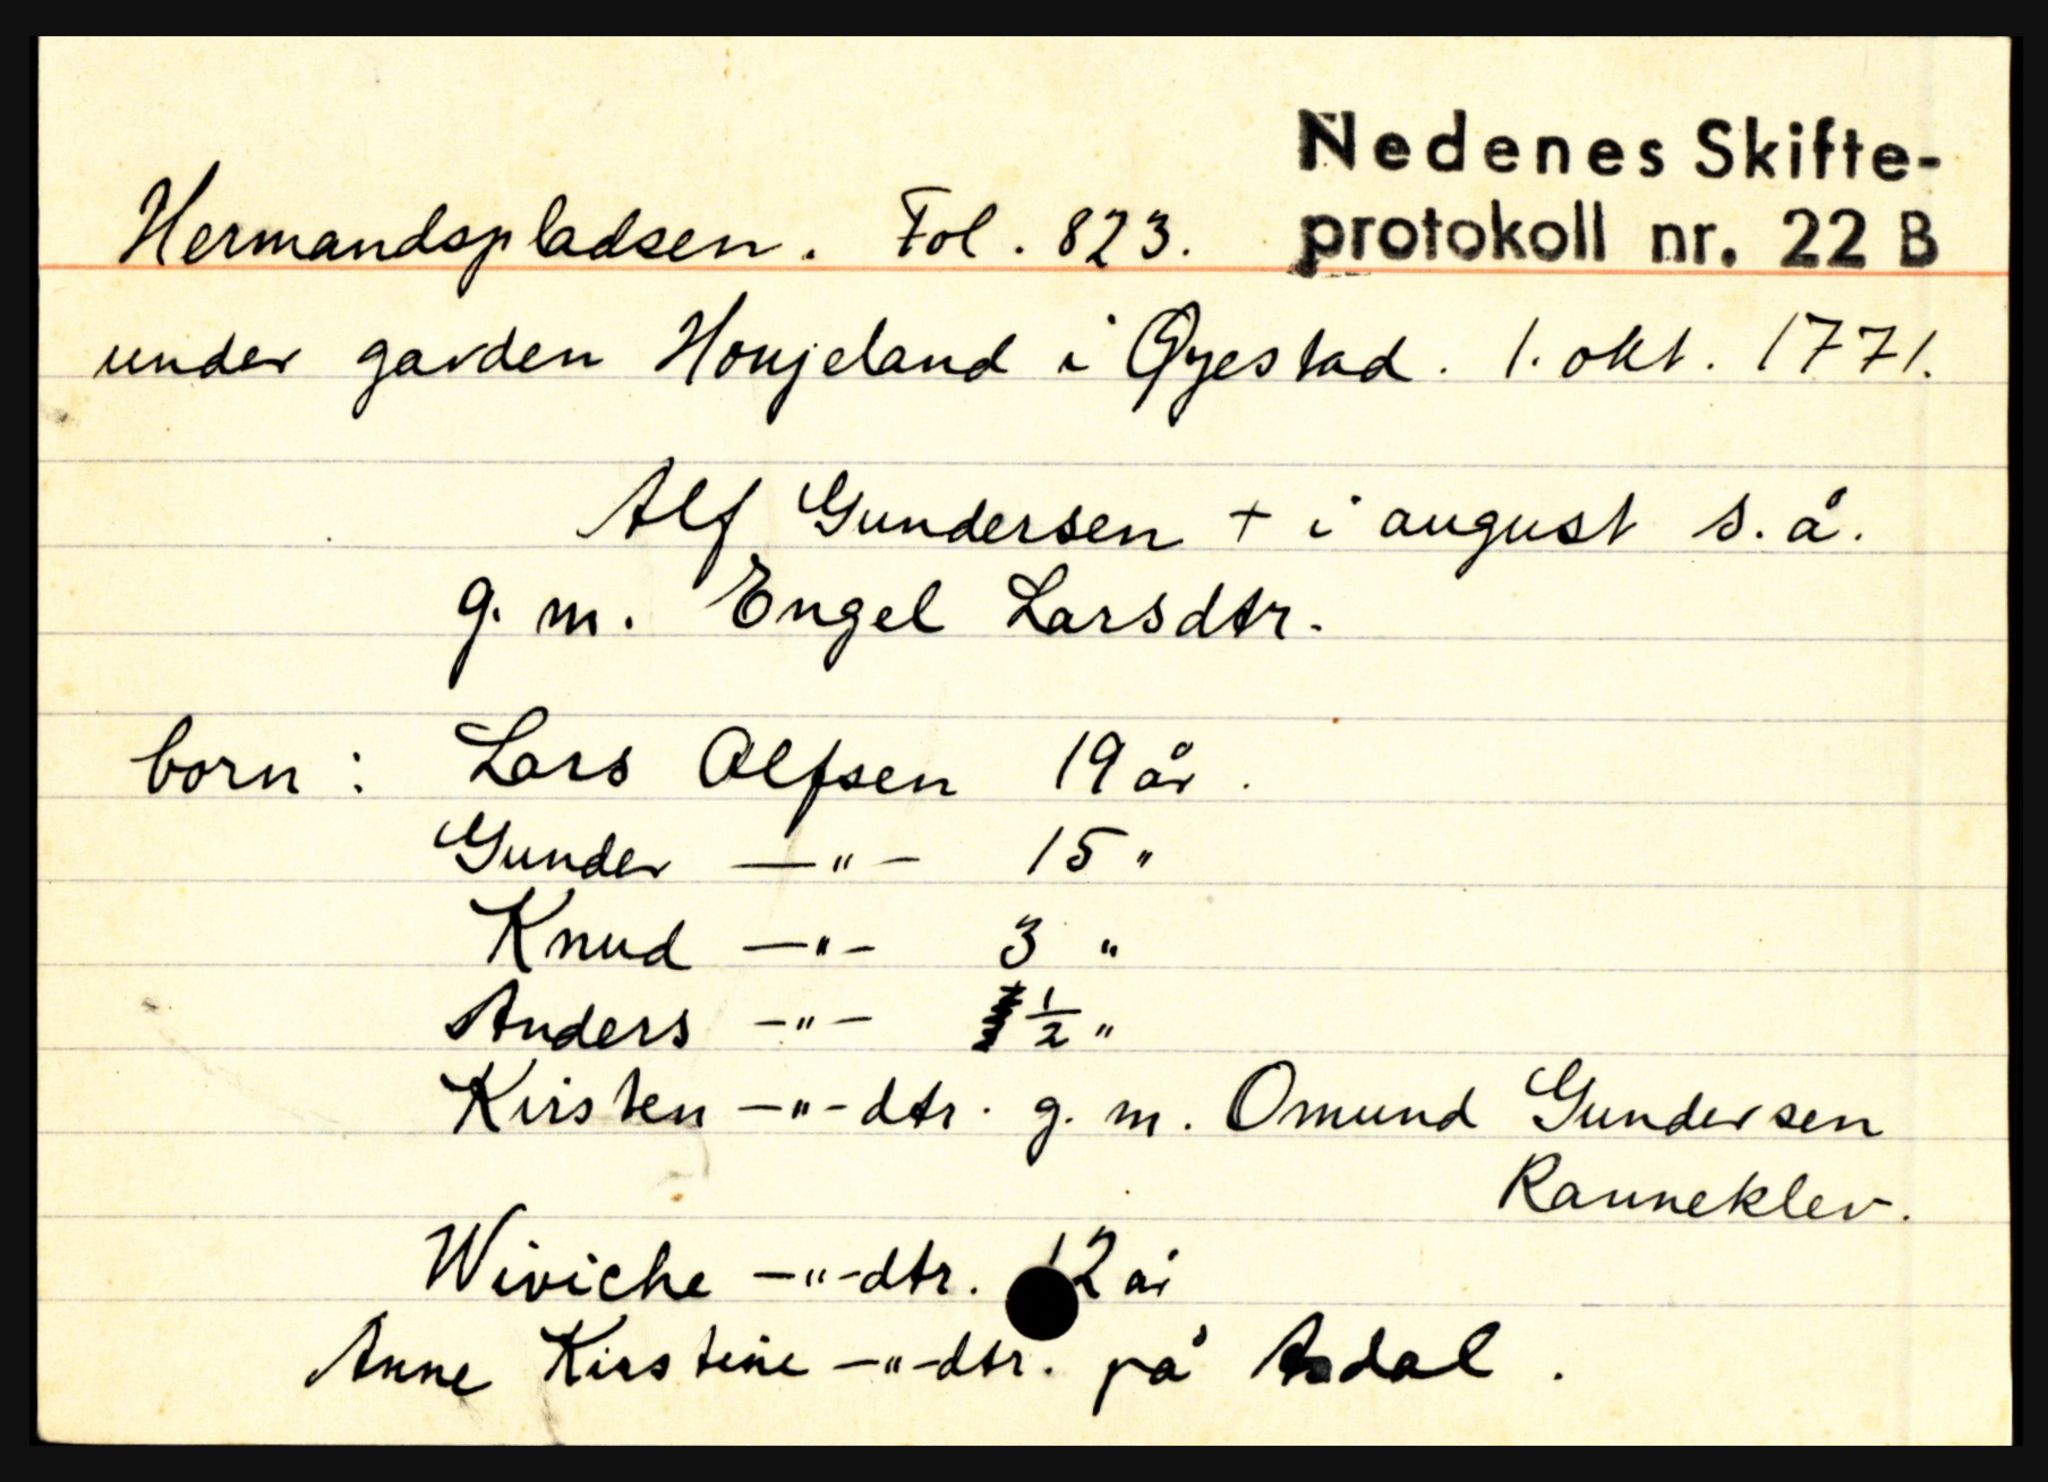 Nedenes Skifte-
Hermandspladsen. Fol. 823. protokoll nr. 22 B
under garden Houjeland i Øyestad. 1. okt. 1771.
Alf Gundersen + i august s. å.
g. m. Engel Larsdtr.
born: Lars Alfsen 19 år.
Gunder —"— 15 "
Knud —"— 3 "
Anders —"— ½ "
Kirsten —"—dtr. g. m. Omund Gundersen
Ranneklev.
Wiviche —"—dtr. 12 år
Anne Kirstine —"—dtr. på Asdal.